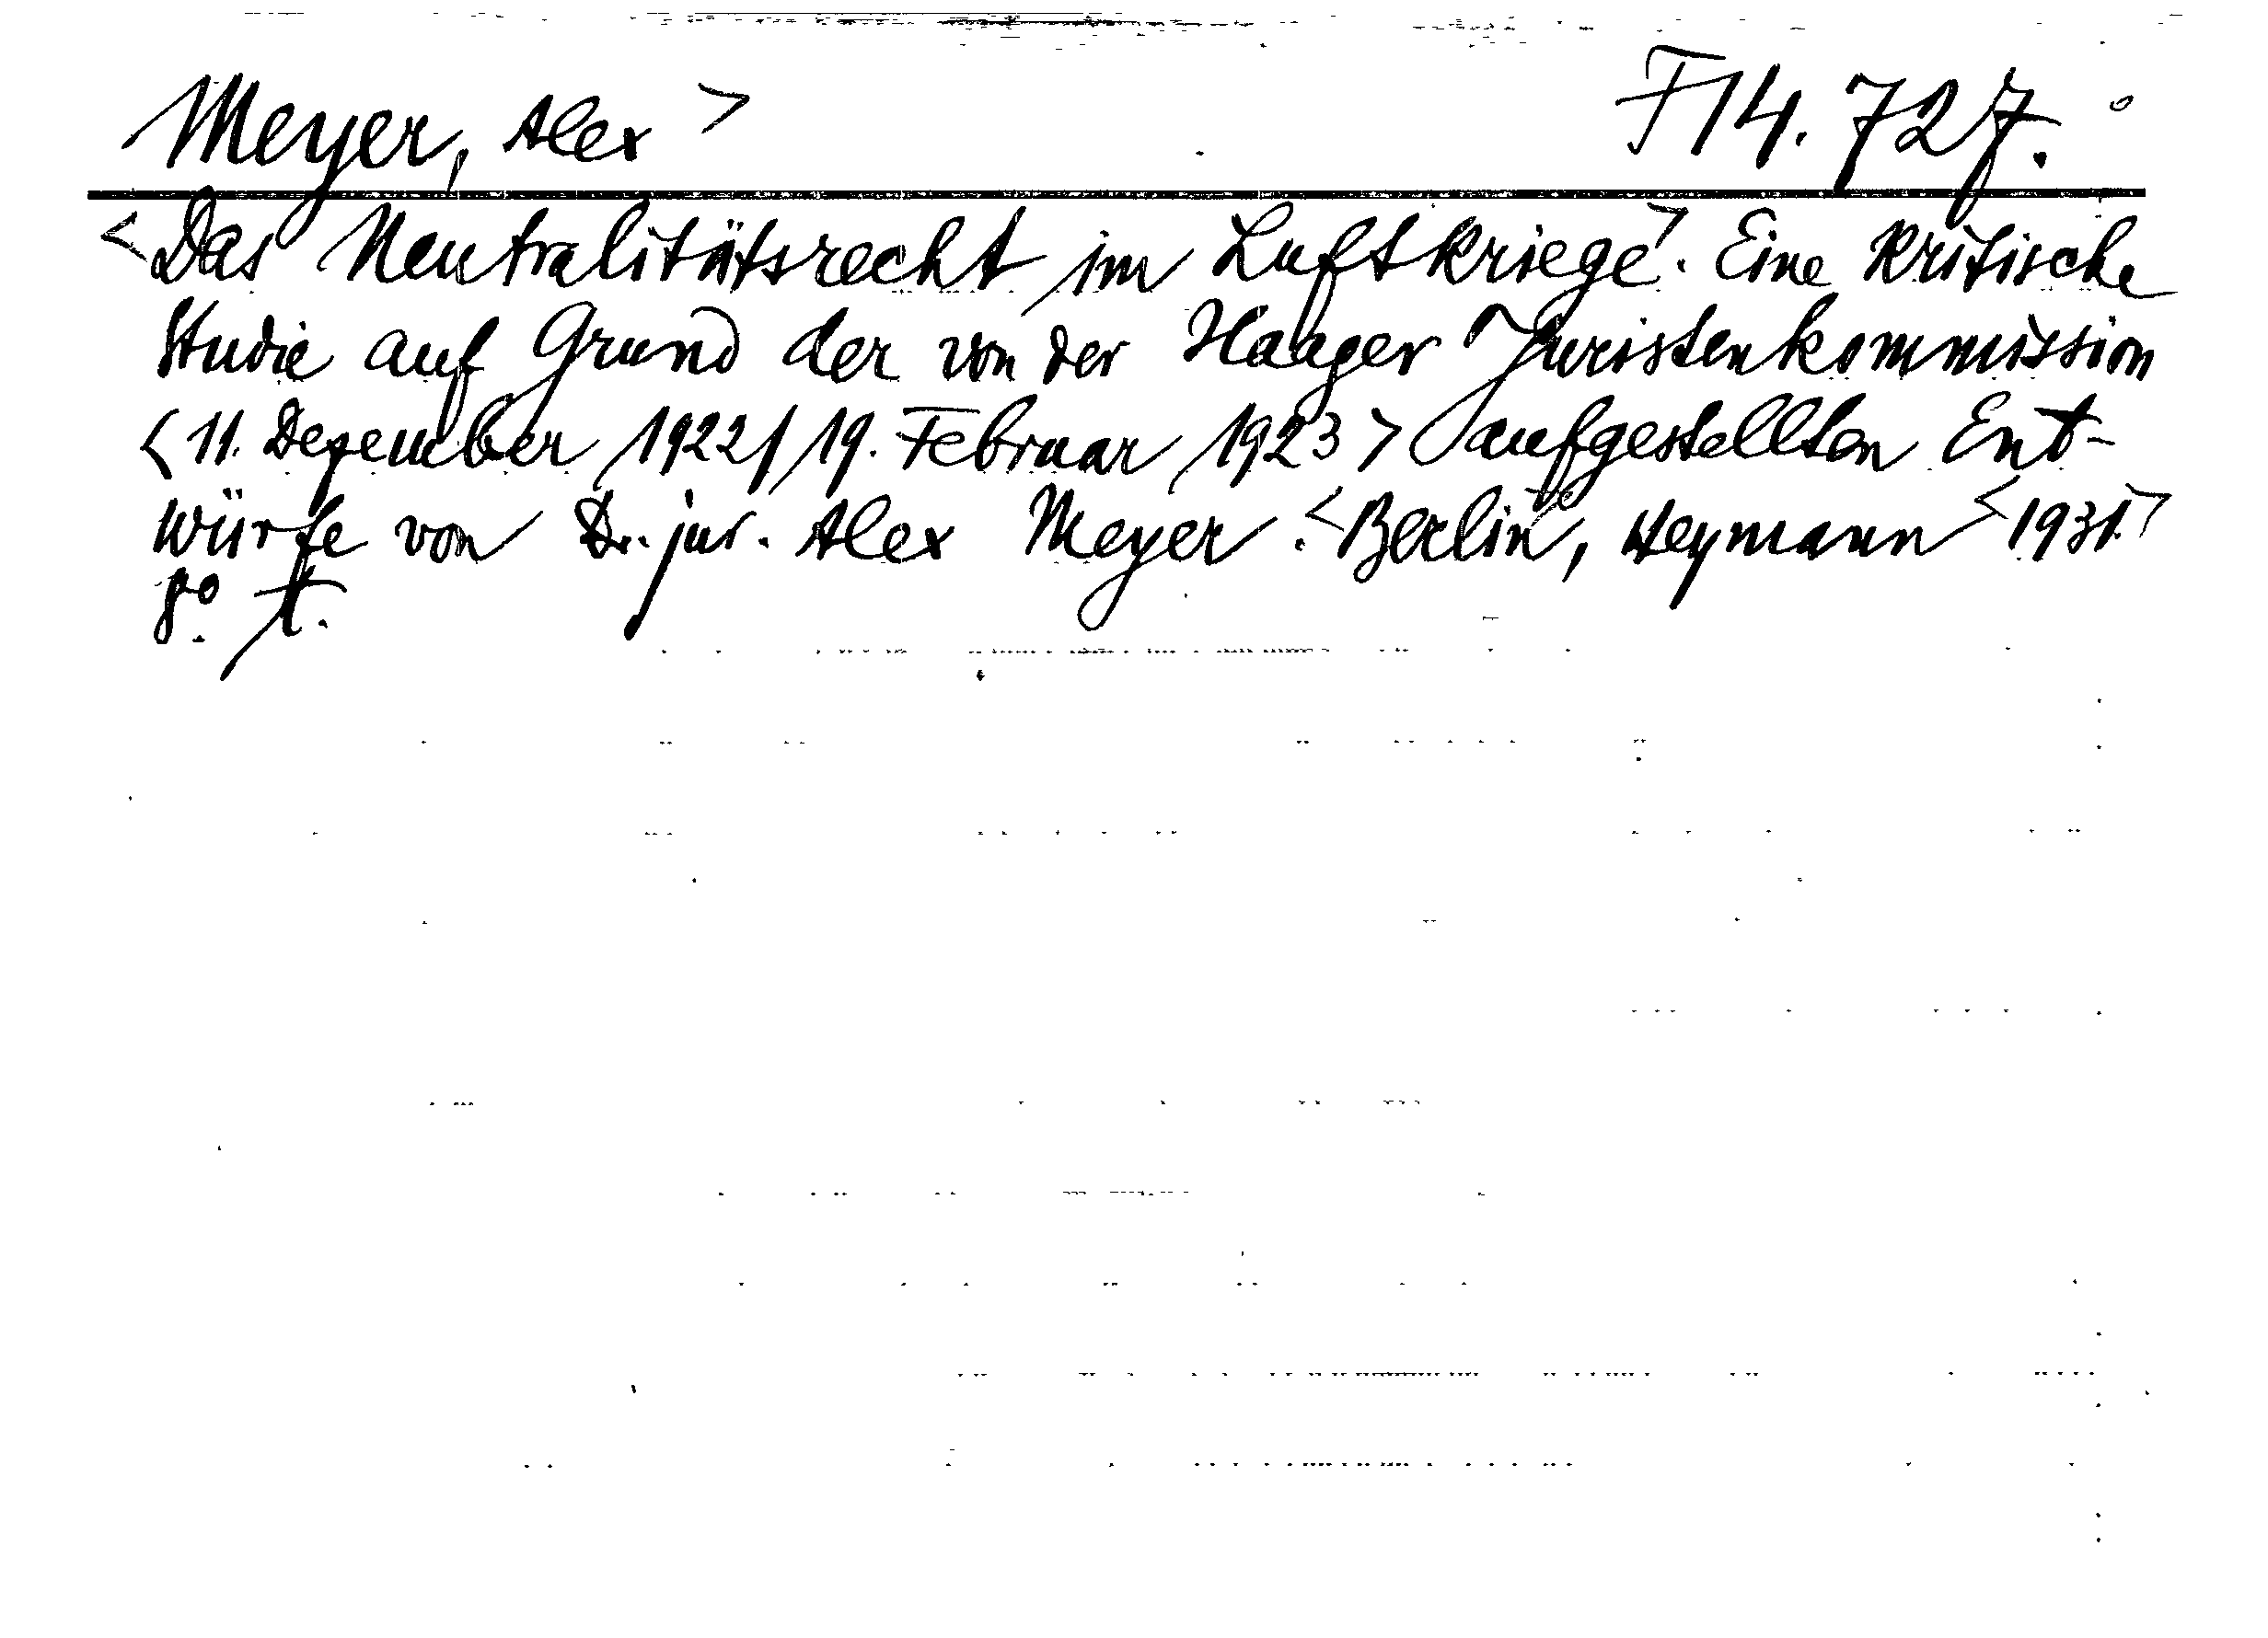 Meyer, Alex > F 14.727.°
<Das Neutralitätsrecht im Luftkriege>. Eine kritische
Studie auf Grund der von der Haager Juristenkommission
<11. Dezember 1922/19. Februar 1923> aufgestellten Ent-
würfe von Dr. jur. Alex Meyer. <Berlin, Heymann <1931.>
8°. t.